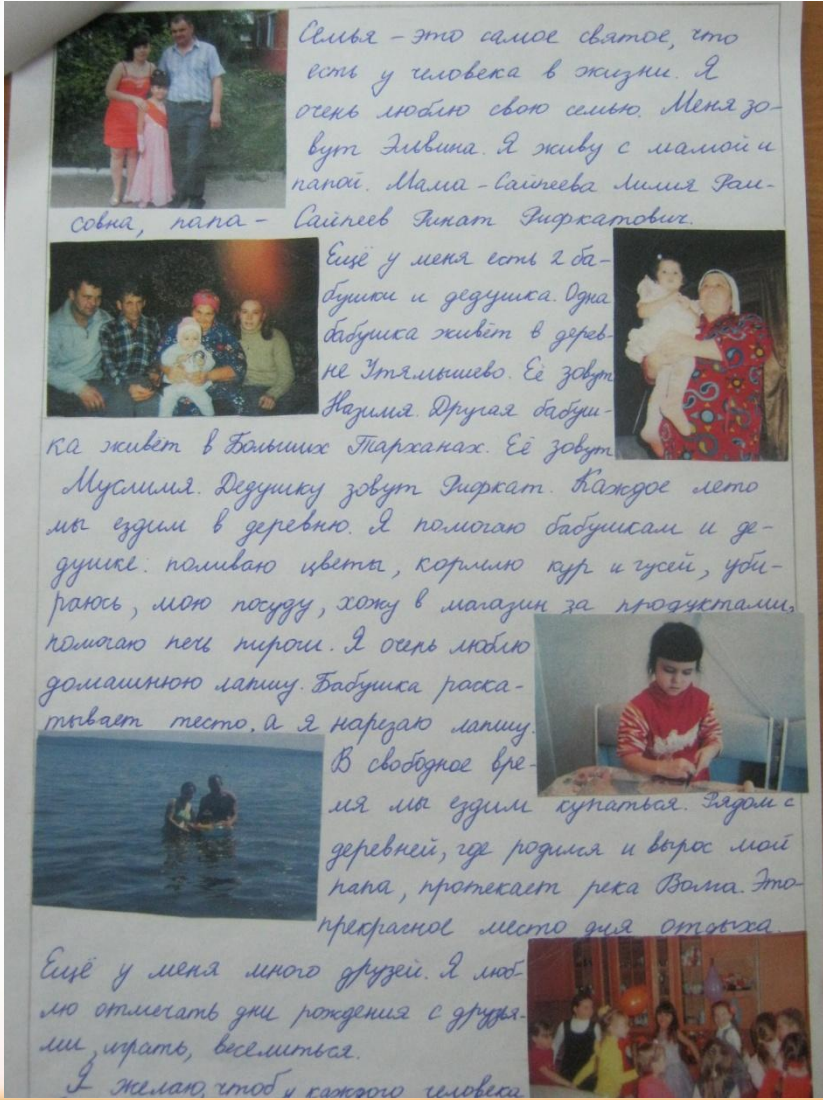 Семья – это самое святое, что
есть у человека в жизни. Я
очень люблю свою семью. Меня зо-
вут Эльвина. Я живу с мамой и
папой. Мама – Сайпеева Лилия Раи-
совна, папа – Сайпеев Ринат Рифкатович.
Ещё у меня есть 2 ба-
бушки и дедушка. Одна
бабушка живёт в дерев-
не Утямышево. Её зовут
Назимя. Другая бабуш-
ка живёт в Больших Тарханах. Её зовут
Муслимя. Дедушку зовут Рифкат. Каждое лето
мы ездим в деревню. Я помогаю бабушкам и де-
душке: поливаю цветы, кормлю кур и гусей, уби-
раюсь, мою посуду, хожу в магазин за продуктами,
помогаю печь пироги. Я очень люблю
домашнюю лапшу. Бабушка раска-
тывает тесто, а я нарезаю лапшу.
В свободное вре-
мя мы ездим купаться. Рядом с
деревней, где родился и вырос мой
папа, протекает река Волга. Это
прекрасное место для отдыха.
Ещё у меня много друзей. Я люб-
лю отмечать дни рождения с друзья-
ми, играть, веселиться.
Я желаю, чтоб у каждого человека